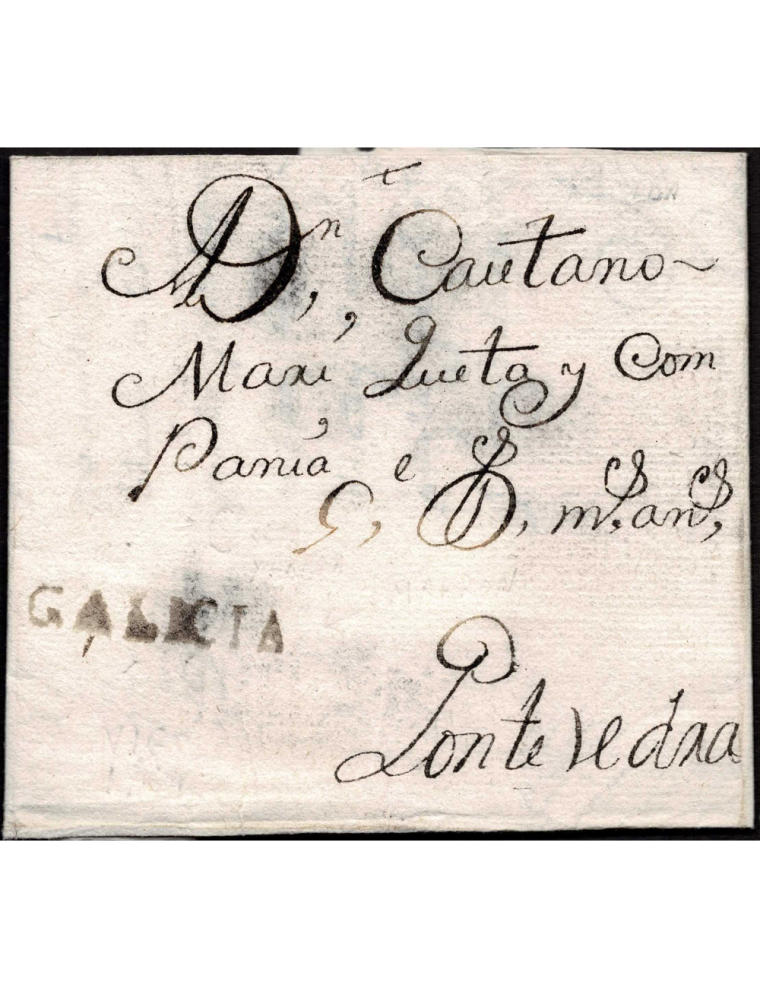 +
A Dn, Cauetano~
Mari Queta y Com
Pania, e
G, D, ms. ans,
GALICIA
Pontevedra